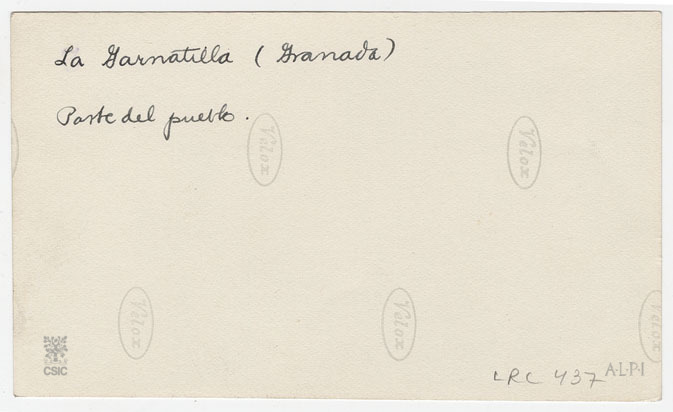 La Garnatilla (Granada)
Parte del pueblo.
Velox
Velox
Velox
Velox
Velox
CSIC
LRC 437
A·L·P·I